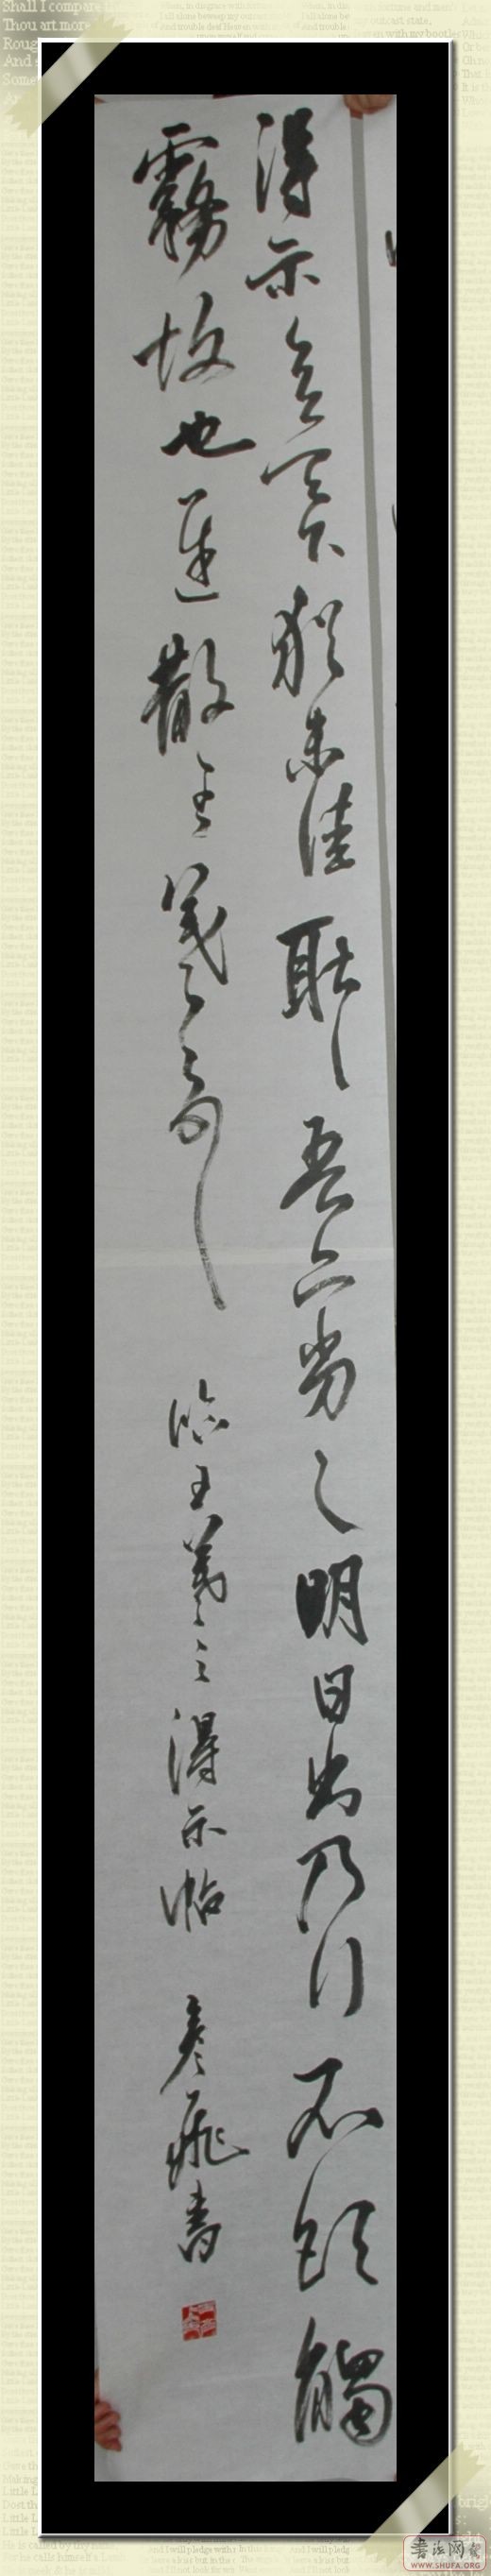 Shall I compare
Thou art more
得示知足下猶未佳耿耿吾亦劣劣明日出乃行不欲觸
霧故也遲散王羲之頓首 临王羲之得示帖 彦飛書
書法网
WWW.SHUFA.ORG